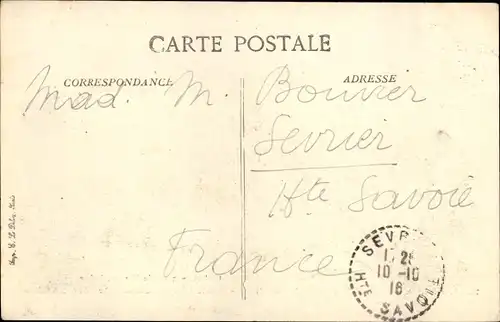 CARTE POSTALE
CORRESPONDANCE
ADRESSE
Mad. M. Bouvier
Sevrier
Hte Savoie
France
SEVR
10-10
16
HTE SAVOIE
Imp. E. Le Deley, Paris